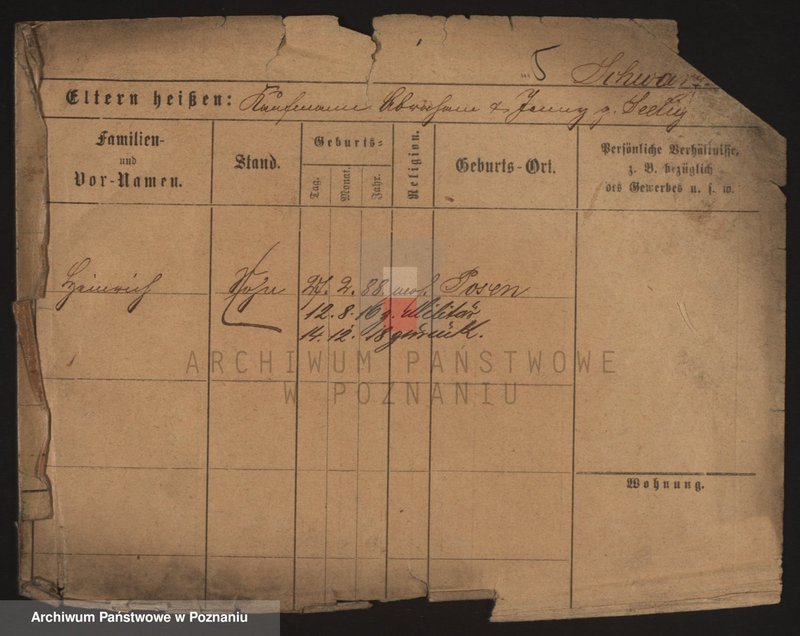 5 Schwarz
Eltern heißen: Kaufmann Abraham & Jenny g. Seelig
Familien- und Vor-Namen.
Stand.
Geburts-
Tag.
Monat.
Jahr.
Religion.
Geburts-Ort.
Persönliche Verhältnisse, z. B. bezüglich des Gewerbes u. s. w.
Heinrich Sohn 2. 88 mos. Posen
12. 8. 16 z. Militär
14. 12. 18 zurück.
ARCHIWUM PAŃSTWOWE
W POZNANIU
Wohnung.
Archiwum Państwowe w Poznaniu